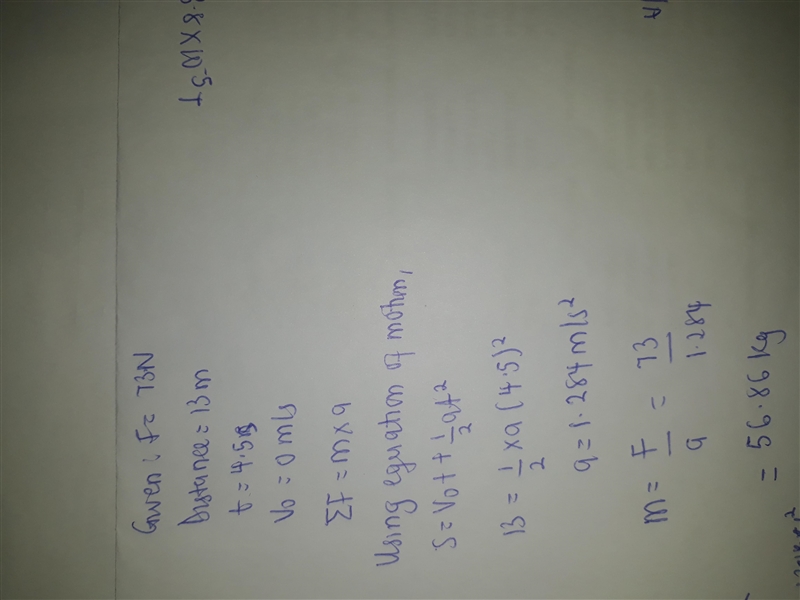 Given: F = 73N
Distance = 13m
t = 4.5s
V0 = 0 m/s
ΣF = m×a
Using equation of motion,
S = V0t + 1/2 at²
13 = 1/2 × a (4.5)²
a = 1.284 m/s²
m = F/a = 73/1.284
= 56.86 kg
8×10-5 T